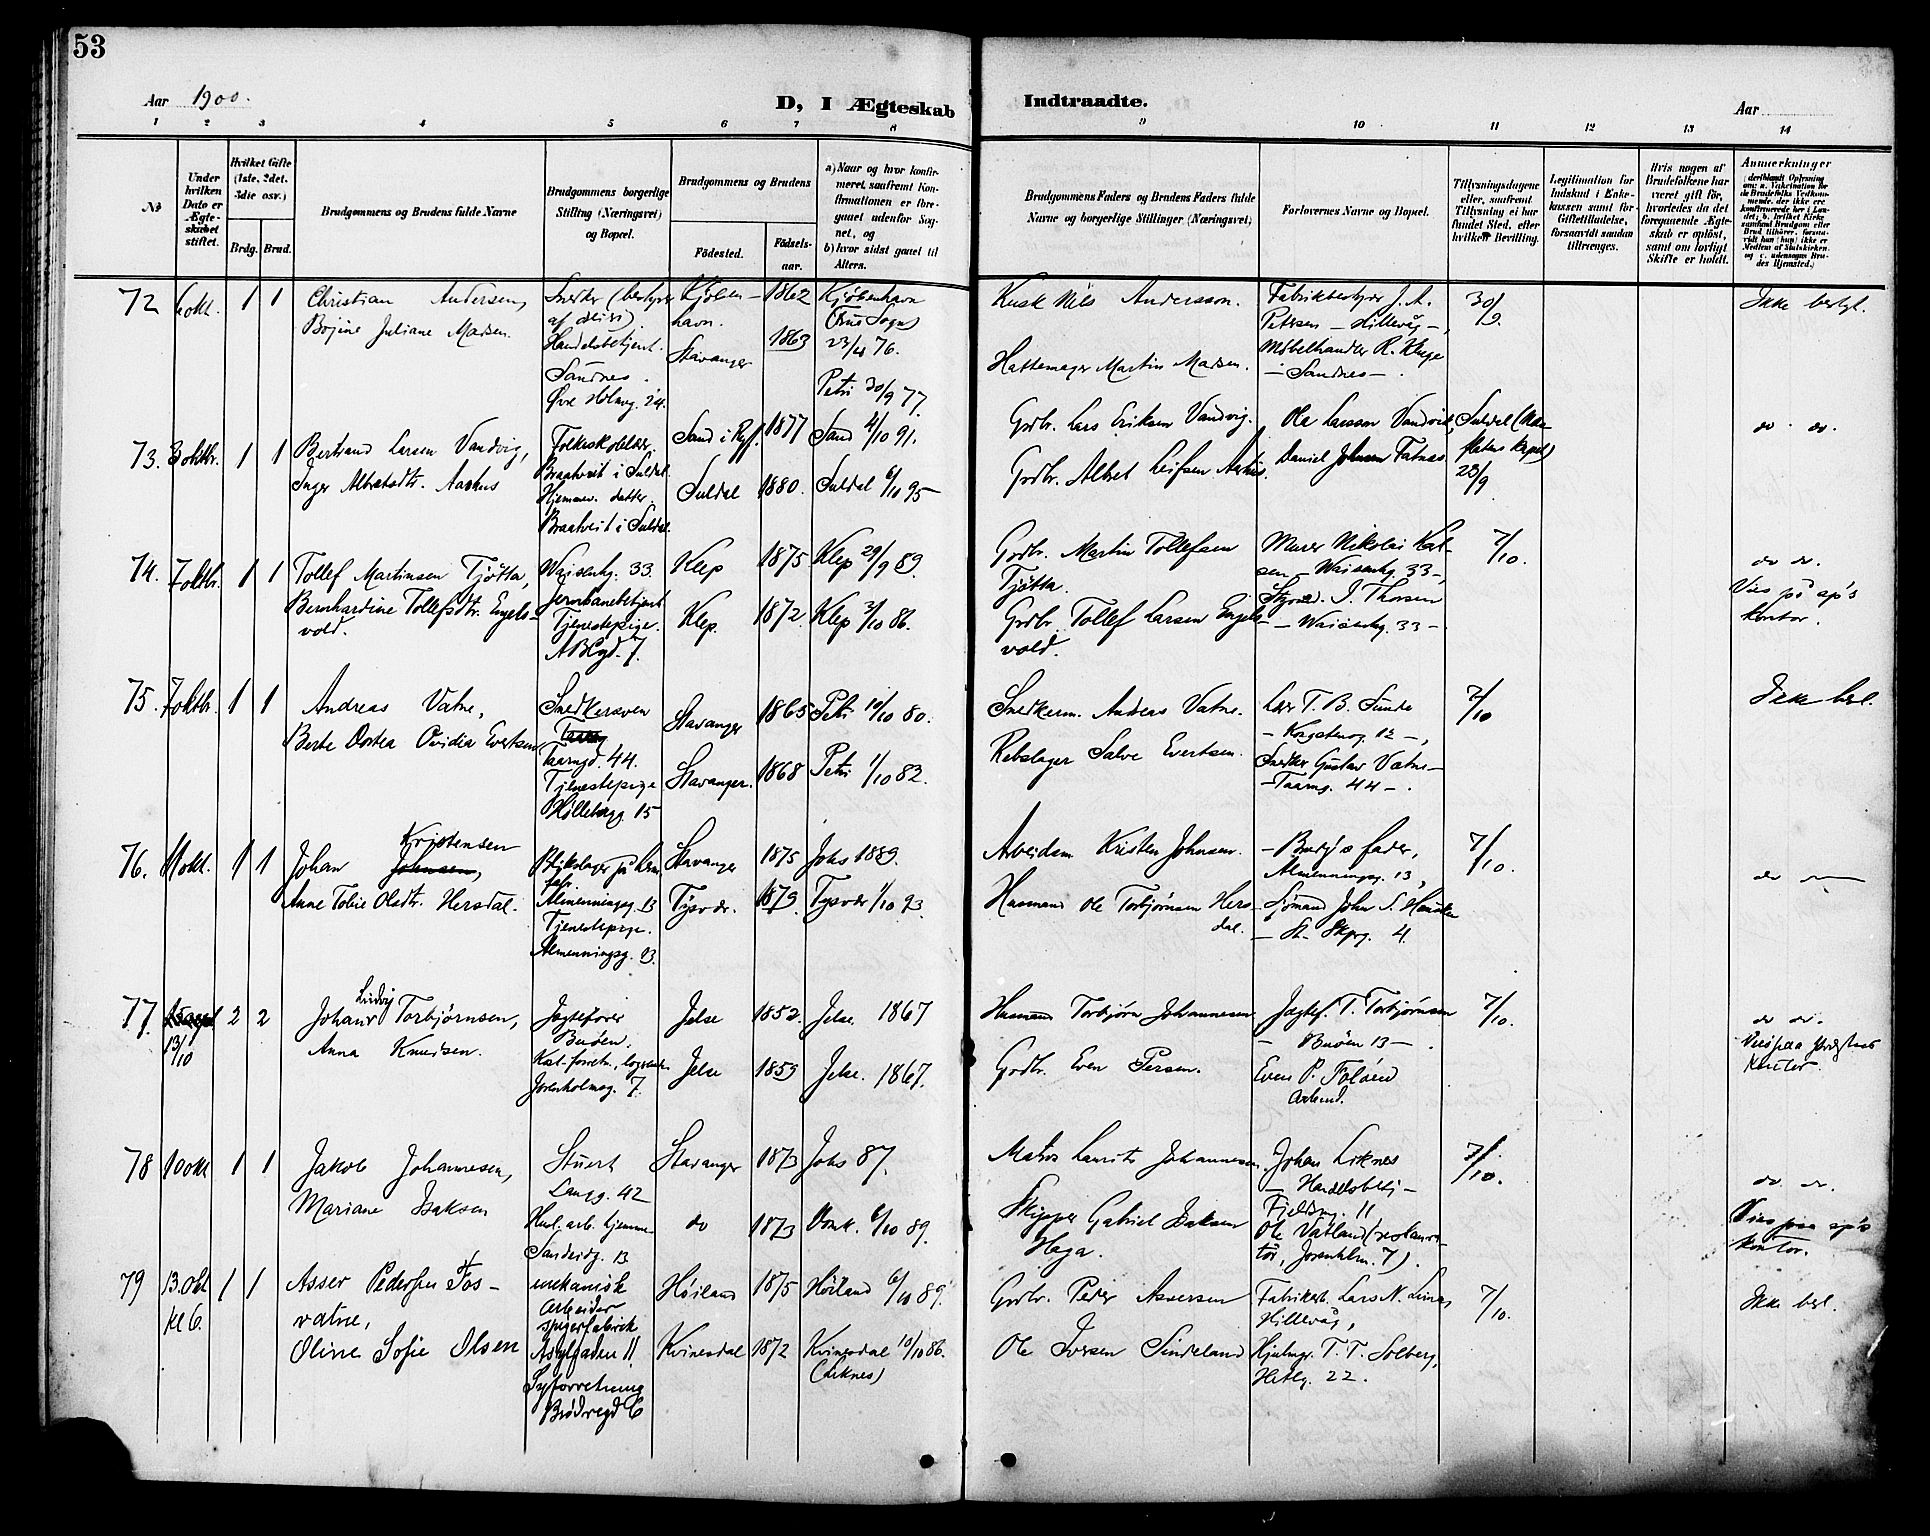 53
Aar 1900.
D, I Ægteskab Indtraadte.
Aar
1 2 3 4 5 6 7 8 9 10 11 12 13 14
No.
Under hvilken Dato er Ægteskabet stiftet.
Hvilket Gifte (1ste, 2det, 3die osv.)
Brdg. Brud.
Brudgommens og Brudens fulde Navne
Brudgommens borgerlige Stilling (Næringsvei) og Bopæl.
Brudgommens og Brudens
Fødested.
Fødselsaar.
a) Naar og hvor konfirmeret, saafremt Konfirmationen er foregaaet udenfor Sognet, og
b) hvor sidst gaaet til Alters.
Brudgommens Faders og Brudens Faders fulde Navne og borgerlige Stillinger (Næringsvei)
Forlovernes Navne og Bopæl.
Tillysningsdagene eller, saafremt Tillysning ei har fundet Sted, efter hvilken Bevilling.
Legitimation for Indskud i Enkekassen samt for Giftetilladelse, forsaavidt saadan tiltrænges.
Hvis nogen af Brudefolkene har været gift før, hvorledes da det foregaaende Ægteskab er opløst, samt om lovligt Skifte er holdt.
Anmerkninger
72 6 okt. 1 1
Christian Andersen,
Bojine Juliane Madsen.
Snedker (bestyrer
Handelsbetjent.
Sandnes.
Øvre Holmeg. 24.
Kjøbenhavn.
Stavanger
1862
1863
Kjøbenhavn
23/4 76.
Petri 30/9 77.
Kusk Nils Andersson.
Hattemager Martin Madsen.
Fabrikbestyrer J. A.
Petersen – Hillevåg –,
Møbelhandler R. Kluge
– Sandnes – .
30/9
Ikke beslgt.
73. 3 oktbr. 1 1
Bertrand Larsen Vandvig,
Inger Albretsdtr. Aarhus
Folkeskolelær.
Braatveit i Suldal
Hjemmev. datter.
Braatveit i Suldal.
Sand i Ryf.
Suldal
1877
1880.
Sand 4/10 91.
Suldal 6/10 95
Grdbr. Lars Eriksen Vandvig.
Grdbr. Albret Leifsen Aarhus.
Ola Larsson Vandvik,
Daniel Johnsen Fatnes
Suldal
28/9
do. do.
74. 7 oktbr. 1 1
Tollef Martinsen Tjøtta,
Bernhardine Tollefsdtr. Engelsvold.
Waisenhg. 33.
Jernbanebetjent
Tjenestepige.
ABCgd. 7.
Klep
Klep.
1875
1872.
Klep 29/9 89.
Klep 3/10 86.
Grdbr. Martin Tollefsen
Tjøtta.
Grdbr. Tollef Larsen Engelsvold.
Murer Nikolai Karsen – Waisenhg. 33 –,
Styrmd. I. Thorsen
– Waisenhg. 33 –
7/10.
do do.
Vies på sp's
kontor.
75. 7 oktbr. 1 1
Andreas Vatne,
Berte Dortea Ovidia Evertsen
Snedkersven
Taarngd. 44.
Tjenestepige
Møllebergg. 15
Stavanger
Stavanger.
1865
1868
Petri 10/10 80.
Petri 1/10 82.
Snedkerm. Andreas Vatne.
Rebslager Salve Evertsen.
Lær T. B. Sunde
– Kongsteinsg. 12 –,
Snedker Gustav Vatne –
– Taarng. 44 – .
7/10
Ikke besl.
76. 11 okt. 1 1
Johan Kristensen
Anne Tobie Olsdtr. Hersdal.
Blikslager
Almenningsg. 13
Tjenestepige.
Almenningsg. 23.
Stavanger
Tysvær.
1875
1879.
Johs 1889.
Tysvær 1/10 93.
Arbeidsm Kristen Johnsen.
Husmand Ole Torbjørnsen Hersdal.
– Brudg's fader,
Almenningsg. 13,
Sjømand John S.
– St. Skpg. 4.
7/10.
do –
77. 13/10 2 2
Johan Ludvig Torbjørnsen,
Anna Knudsen.
Jagtefører
Buøen.
Jorenholmeg. 7.
Jelse
Jelse
1852.
1853
Jelse. 1867
Jelse. 1867.
Husmand Torbjørn Johannesen
Grdbr. Even Persen.
Jagtef. T. Torbjørnsen
– Buøen 13 – .
Even P. Foløend
Arbmd.
7/10.
do do.
Vies paa
Kontor.
78 10 okt 1 1
Jakob Johannesen,
Mariane Isaksen
Stuert
Langg. 42
Husl. arb. hjemme
Sandeidg. 13
Stavanger
do
1873
1873
Johs 87.
Domk. 6/10 89.
Matros Laurits Johannesen.
Skipper Gabriel Isaksen
Haga.
Johan Liknes
– Handelsbetj –
Fjeldsg. 11
Ole Vatland (restauratør, Jorenholm. 7).
7/10.
do do.
Vies paa sp's
kontor.
79 13. Okt kl 6. 1 1
Asser Pedersen Fosvatne,
Oline Sofie Olsen
mekanisk
Arbeider
spigerfabrik
Asylgaden 11.
Syforretning
Brødregd 6
Høiland
Kvinesdal
1875
1872
Høiland 6/10 89.
Kvinesdal 10/10 86.
(Liknes)
Grdbr. Peder Assersen
Ole Iversen Sindeland
Fabrikest. Lars N. Lima,
Hillevåg,
Hjulmgr. T. T. Solberg,
Hetlg. 22.
7/10.
Ikke besl.